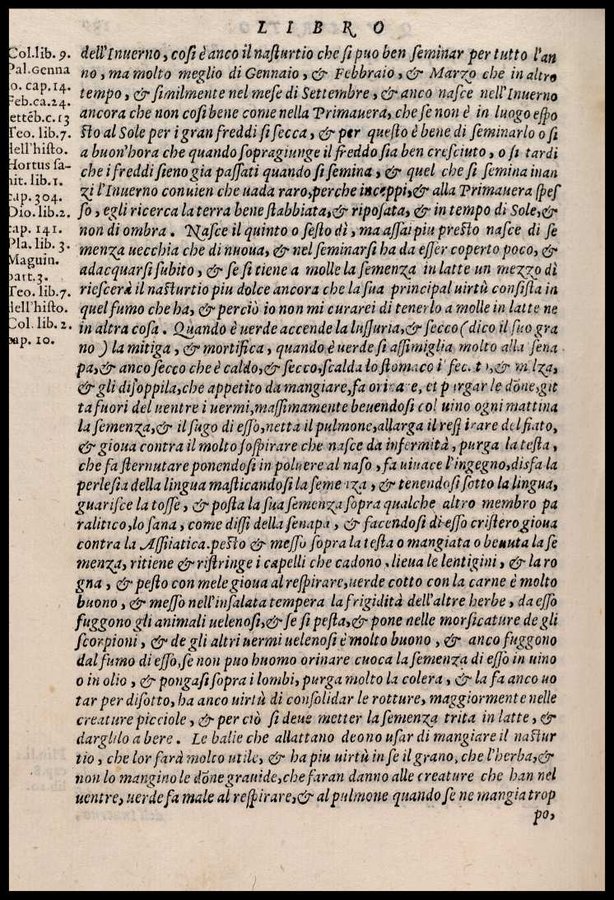 LIBRO
Col. lib. 9.
Pal. Genna
io. cap. 14.
Feb. ca. 24.
ettēb. c. 13
Teo. lib. 7.
dell'histo.
Hortus sa-
nit. lib. 1.
cap. 304.
Dio. lib. 2.
cap. 141.
Pla. lib. 3.
Maguin.
patt. 3.
Teo. lib. 7.
dell'histo.
Col. lib. 2.
cap. 10.
dell'Inuerno, cosi è anco il nasturtio che si puo ben seminar per tutto l'an
no, ma molto meglio di Gennaio, & Febbraio, & Marzo che in altro
tempo, & similmente nel mese di Settembre, & anco nasce nell'Inuerno
ancora che non cosi bene come nella Primauera, che se non è in luogo espo
sto al Sole per i gran freddi si secca, & per questo è bene di seminarlo o si
a buon'hora che quando sopragiunge il freddo sia ben cresciuto, o si tardi
che i freddi sieno gia passati quando si semina, & quel che si semina inan
zi l'Inuerno conuien che uada raro, perche inceppi, & alla Primauera spes
so, egli ricerca la terra bene stabbiata, & riposata, & in tempo di Sole, &
non di ombra. Nasce il quinto o sesto dì, ma assai piu presto nasce di se
menza uecchia che di nuoua, & nel seminarsi ha da esser coperto poco, &
adacquarsi subito, & se si tiene a molle la semenza in latte un mezzo dì
riescerà il nasturtio piu dolce ancora che la sua principal uirtù consista in
quel fumo che ha, & perciò io non mi curarei di tenerlo a molle in latte ne
in altra cosa. Quando è uerde accende la lussuria, & secco (dico il suo gra
no) la mitiga, & mortifica, quando è uerde si assimiglia molto alla sena
pa, & anco secco che è caldo, & secco, scalda lo stomaco & milza,
& gli disoppila, che appetito da mangiare, fa orinare, et purgar le dōne, git
ta fuori del uentre i uermi, massimamente beuendosi col uino ogni mattina
la semenza, & il sugo di esso, netta il pulmone, allarga il respirare del fiato,
& gioua contra il molto sospirare che nasce da infermità, purga la testa,
che fa sternutare ponendosi in poluere al naso, fa uiuace l'ingegno, disfa la
perlesia della lingua masticandosi la semenza, & tenendosi sotto la lingua,
guarisce la tosse, & posta la sua semenza sopra qualche altro membro pa
ralitico, lo sana, come dissi della senapa, & facendosi di esso cristero gioua
contra la Assiiatica. pesto & messo sopra la testa o mangiata o beuuta la se
menza, ritiene & ristringe i capelli che cadono, lieua le lentigini, & la ro
gna, & pesto con mele gioua al respirare, uerde cotto con la carne è molto
buono, & messo nell'insalata tempera la frigidità dell'altre herbe, da esso
fuggono gli animali uelenosi, & se si pesta, & pone nelle morsicature de gli
scorpioni, & de gli altri uermi uelenosi è molto buono, & anco fuggono
dal fumo di esso, se non puo huomo orinare cuoca la semenza di esso in uino
o in olio, & pongasi sopra i lombi, purga molto la colera, & la fa anco uo
tar per disotto, ha anco uirtù di consolidar le rotture, maggiormente nelle
creature picciole, & per ciò si deue metter la semenza trita in latte, &
darglilo a bere. Le balie che allattano deono usar di mangiare il nastur
tio, che lor farà molto utile, & ha piu uirtù in se il grano, che l'herba, &
non lo mangino le dōne grauide, che faran danno alle creature che han nel
uentre, uerde fa male al respirare, & al pulmone quando se ne mangia trop
po,